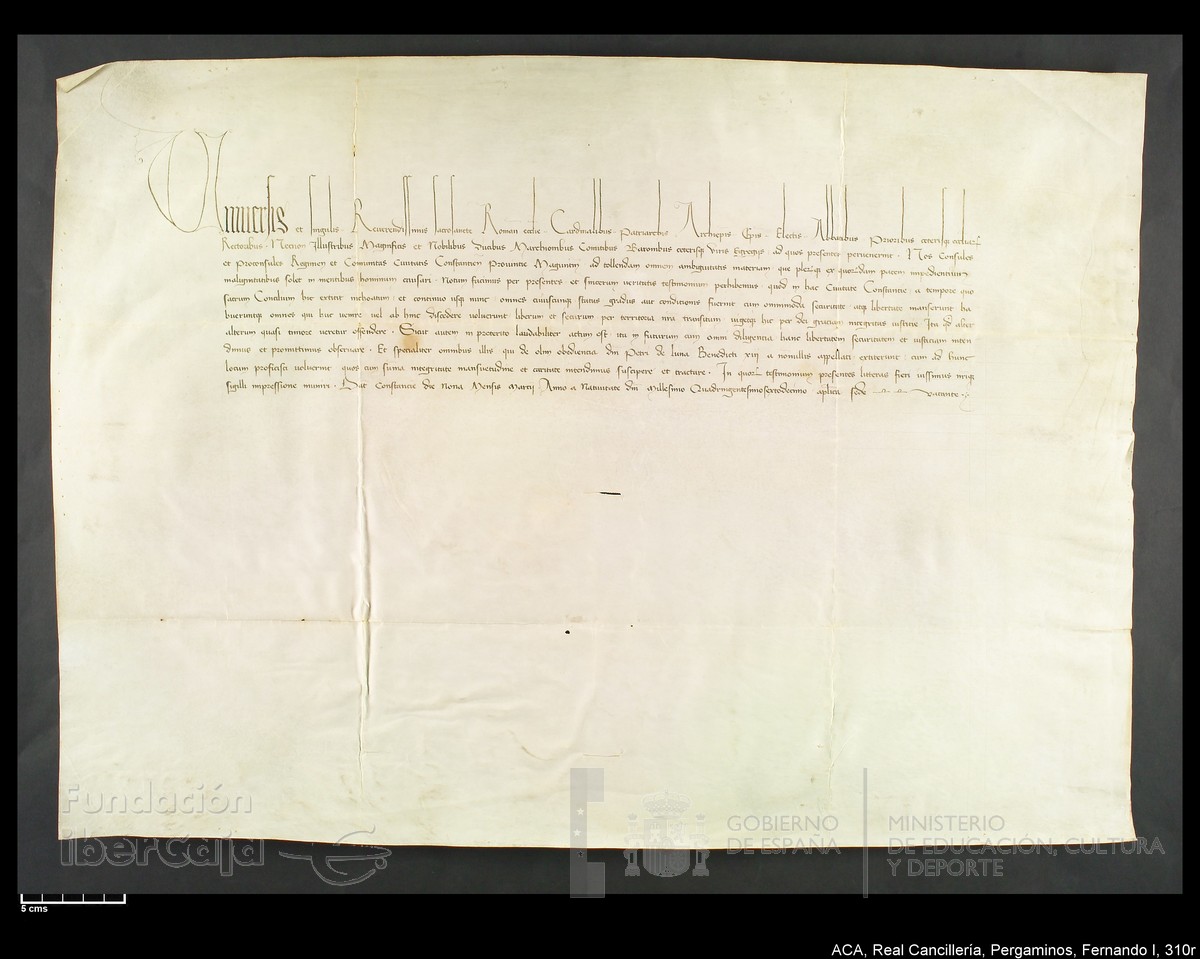 Universis et singulis Reverendissimis sacrosancte Roman ecclie Cardinalibus Patriarchis Archiepis Epis Electis Abbatibus Prioribus ceterisq ecclesiar
Rectoribus Necnon Illustribus Magnificis et Nobilibus Ducibus Marchionibus Comitibus Baronibus ceterisq viris Egregiis ad quos presentes pervenerint Nos Consules
et Proconsules Regimen et Comunitas Civitatis Constantien Provincie Maguntin ad tollendam omnem ambiguitatis materiam que plerumq ex quorundam pacem impedientium
malignitatibus solet in mentibus hominum causari Notum facimus per presentes et sincerum veritatis testimonium perhibemus quod in hac Civitate Constancie a tempore quo
sacrum Concilium hic extitit inchoatum et continuo usq nunc omnes cuiuscunq status gradus aut conditionis fuerint cum omnimoda securitate atq libertate manserunt ha
bueruntq omnes qui huc venire vel ab hinc discedere voluerunt liberum et securum per territoria nra transitum vigetq hic per dei graciam integritas iusticie Ita qd alter
alterum quasi timore veretur offendere Sicut autem in preterito laudabiliter actum est ita in futurum cum omni diligentia hanc libertatem securitatem et iusticiam inten
dimus et promittimus observare Et specialiter omnibus illis qui de olim obediencia dni Petri de luna Benedicti xiii a nonullis appellati extiterunt cum ad hunc
locum proficisci voluerint quos cum suma integritate mansuetudine et caritate intendimus suscipere et tractare In quorum testimonium presentes litteras fieri iussimus nriq
sigilli impressione muniri Dat Constancie die Nona Mensis Marcij Anno a Nativitate dni Millesimo Quadringentesimosextodecimo aplica sede vacante
Fundación
iberCaja
GOBIERNO
DE ESPAÑA
MINISTERIO
DE EDUCACIÓN, CULTURA
Y DEPORTE
5 cms
ACA, Real Cancillería, Pergaminos, Fernando I, 310r